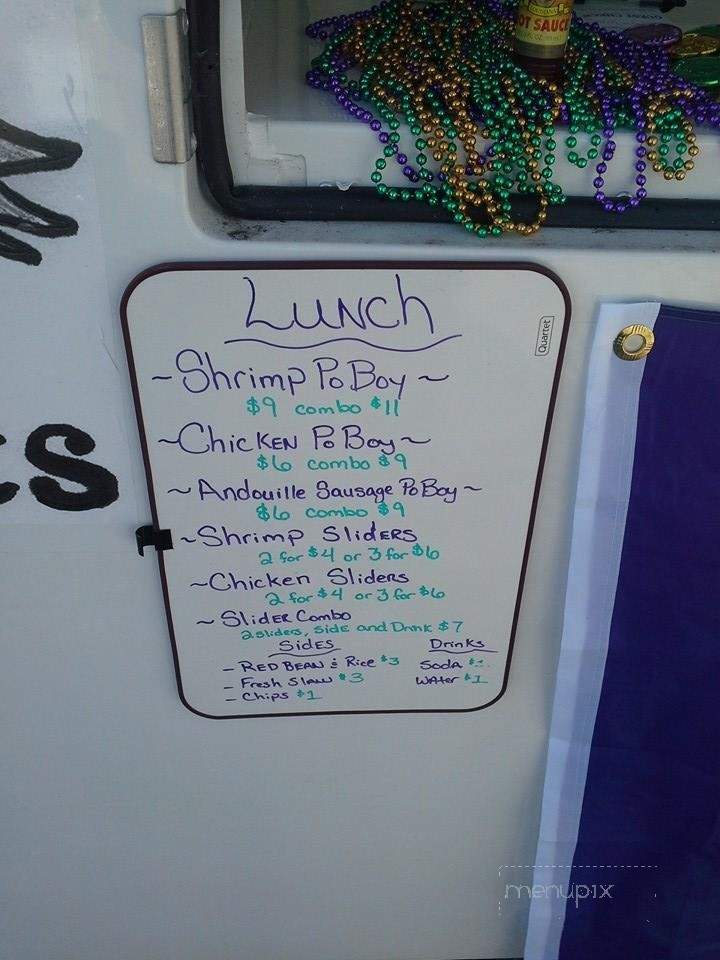 OT SAUCE
Lunch
Quartet
~Shrimp Po Boy~
$9 combo $11
~Chicken Po Boy~
$6 combo $9
~Andouille Sausage Po Boy~
$6 combo $9
ES
~Shrimp Sliders
2 for $4 or 3 for $6
~Chicken Sliders
2 for $4 or 3 for $6
~Slider Combo
2 sliders, side and Drink $7
Sides Drinks
- Red Bean & Rice $3 Soda
- Fresh Slaw $3 Water $1
- Chips $1
menupix